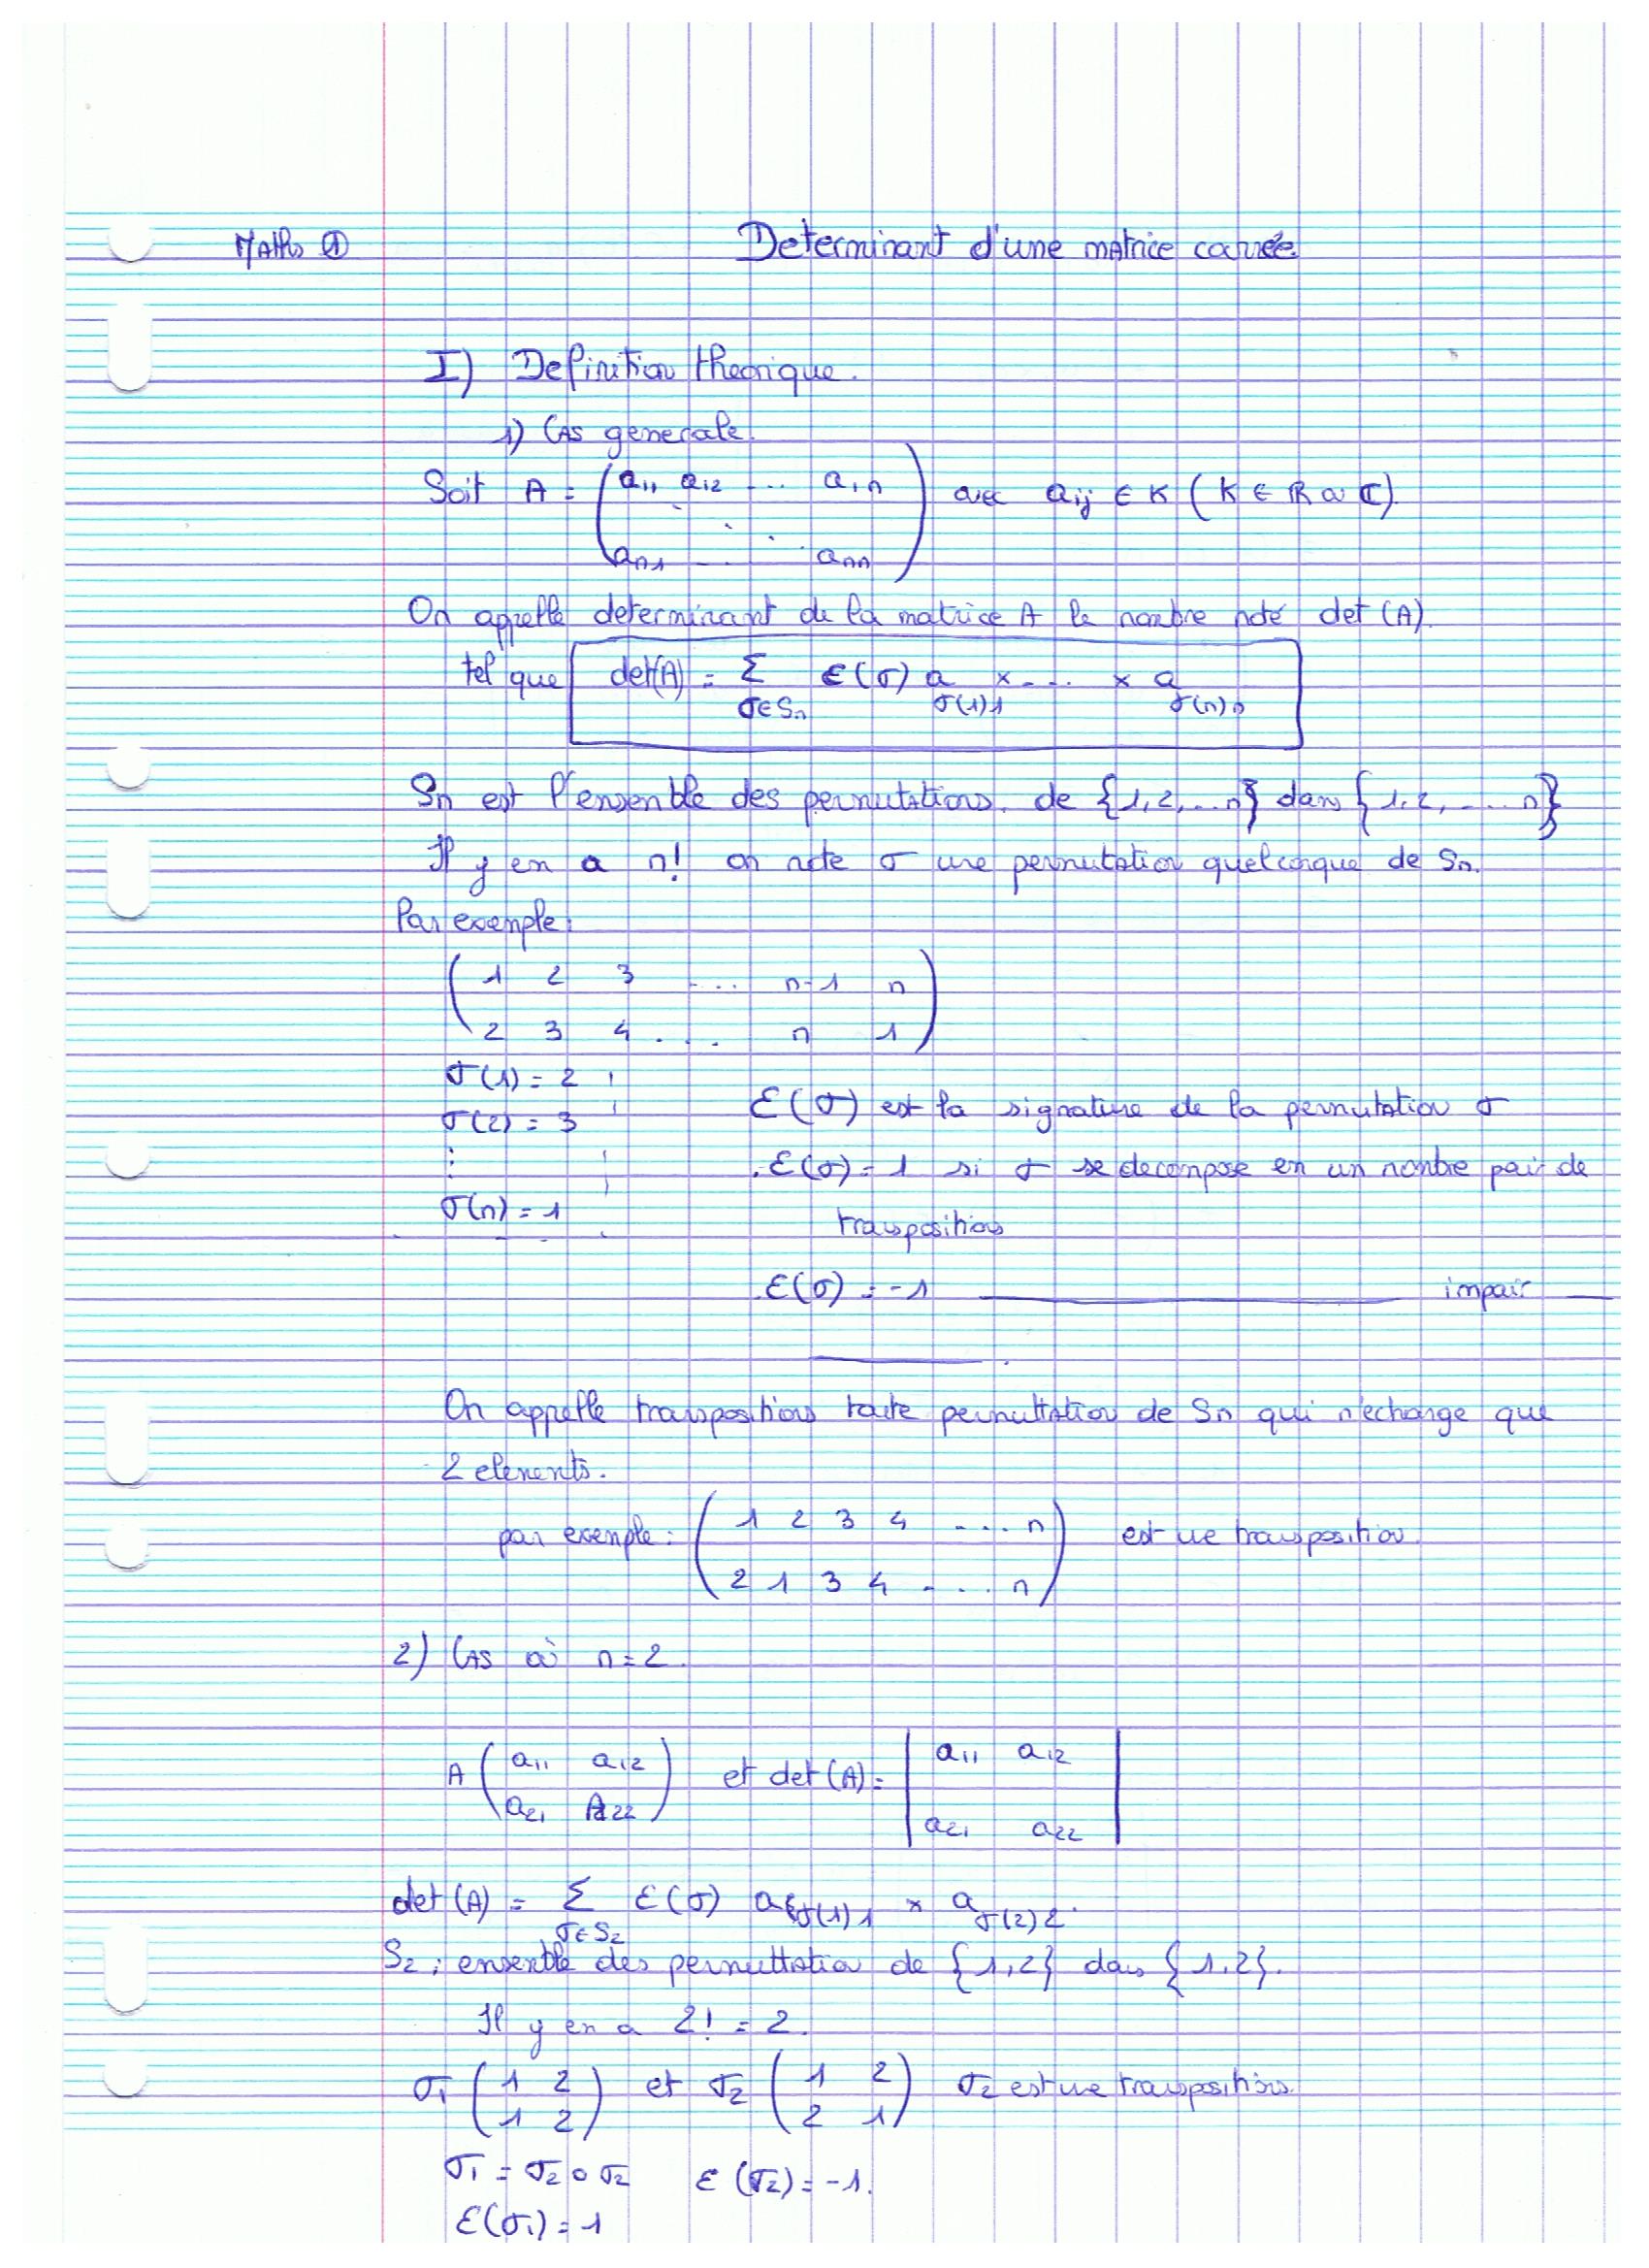 Maths ①
Determinant d'une matrice carrée
I) Definition theorique.
1) Cas generale.
Soit A = ( a11 a12 ... a1n ) avec aij ∈ K ( K ∈ ℝ ou ℂ).
an1 ... ann
On appelle determinant de la matrice A le nombre noté det (A).
tel que det(A) = Σ ε(σ) a × .... × a
σ∈Sn σ(1)1 σ(n)n
Sn est l'ensemble des permutations. de {1,2,...n} dans {1,2,....n}
Il y en a n! on note σ une permutation quelconque de Sn.
Par exemple:
( 1 2 3 .... n-1 n )
( 2 3 4 .... n 1 )
σ(1) = 2
σ(2) = 3
⋮
σ(n) = 1
ε(σ) est la signature de la permutation σ
.ε(σ) = 1 si σ se decompose en un nombre pair de
transpositions
.ε(σ) = -1 ________ impair __
On appelle transpositions toute permuttation de Sn qui n'échange que
2 elements.
par exemple: ( 1 2 3 4 .... n ) est une transposition.
( 2 1 3 4 .... n )
2) Cas où n = 2.
A ( a11 a12 ) et det (A) = | a11 a12 |
( a21 a22 ) | a21 a22 |
det (A) = Σ ε(σ) aσ(1)1 × aσ(2)2.
σ∈S2
S2 : ensemble des permuttation de {1,2} dans {1,2}.
Il y en a 2! = 2.
σ1 ( 1 2 ) et σ2 ( 1 2 ) σ2 est une transpositions.
( 1 2 ) ( 2 1 )
σ1 = σ2 ∘ σ2 ε (σ2) = -1.
ε(σ1) = 1